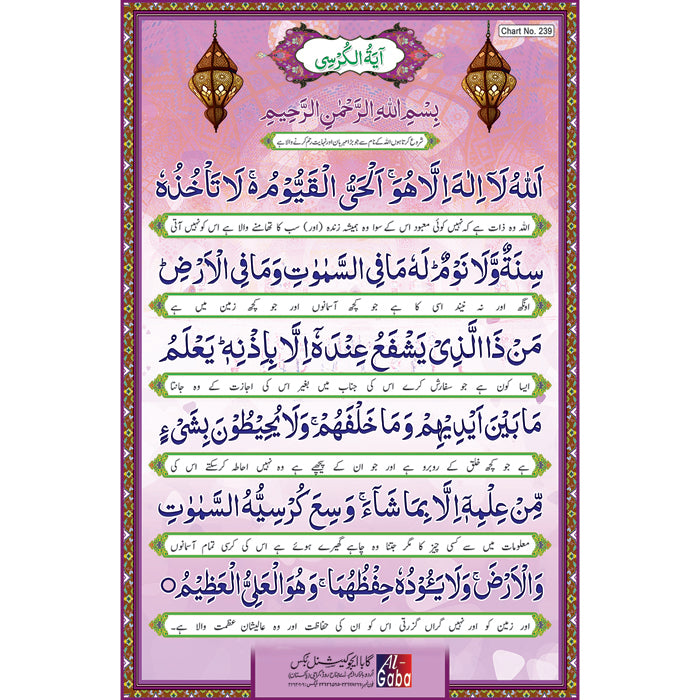 Chart No. 239
آيَةُ الْكُرْسِى
بِسْمِ اللهِ الرَّحْمٰنِ الرَّحِيْمِ
شروع کرتا ہوں اللہ کے نام سے جو بڑا مہربان اور نہایت رحم کرنے والا ہے
اَللهُ لَاۤ اِلٰهَ اِلَّا هُوَ ۚ اَلْحَىُّ الْقَيُّوْمُ ۚ لَا تَاْخُذُهٗ
اللہ وہ ذات ہے کہ نہیں کوئی معبود اس کے سوا وہ ہمیشہ زندہ (اور) سب کا تھامنے والا ہے اس کو نہیں آتی
سِنَةٌ وَّلَا نَوْمٌ ؕ لَهٗ مَا فِى السَّمٰوٰتِ وَمَا فِى الْاَرْضِ ؕ
اونگھ اور نہ نیند اسی کا ہے جو کچھ آسمانوں اور جو کچھ زمین میں ہے
مَنْ ذَا الَّذِىْ يَشْفَعُ عِنْدَهٗۤ اِلَّا بِاِذْنِهٖ ؕ يَعْلَمُ
ایسا کون ہے جو سفارش کرے اس کی جناب میں بغیر اس کی اجازت کے وہ جانتا
مَا بَيْنَ اَيْدِيْهِمْ وَمَا خَلْفَهُمْ ۚ وَلَا يُحِيْطُوْنَ بِشَىْءٍ
ہے جو کچھ خلق کے روبرو ہے اور جو ان کے پیچھے ہے وہ نہیں احاطہ کرسکتے اس کی
مِّنْ عِلْمِهٖۤ اِلَّا بِمَا شَآءَ ۚ وَسِعَ كُرْسِيُّهُ السَّمٰوٰتِ
معلومات میں سے کسی چیز کا مگر جتنا وہ چاہے گھیرے ہوئے ہے اس کی کرسی تمام آسمانوں
وَالْاَرْضَ ۚ وَلَا يَـُٔوْدُهٗ حِفْظُهُمَا ۚ وَهُوَ الْعَلِىُّ الْعَظِيْمُ ○
اور زمین کو اور نہیں گراں گزرتی اس کو ان کی حفاظت اور وہ عالیشان عظمت والا ہے۔
گابا ایجوکیشنل بکس
Al-Gaba